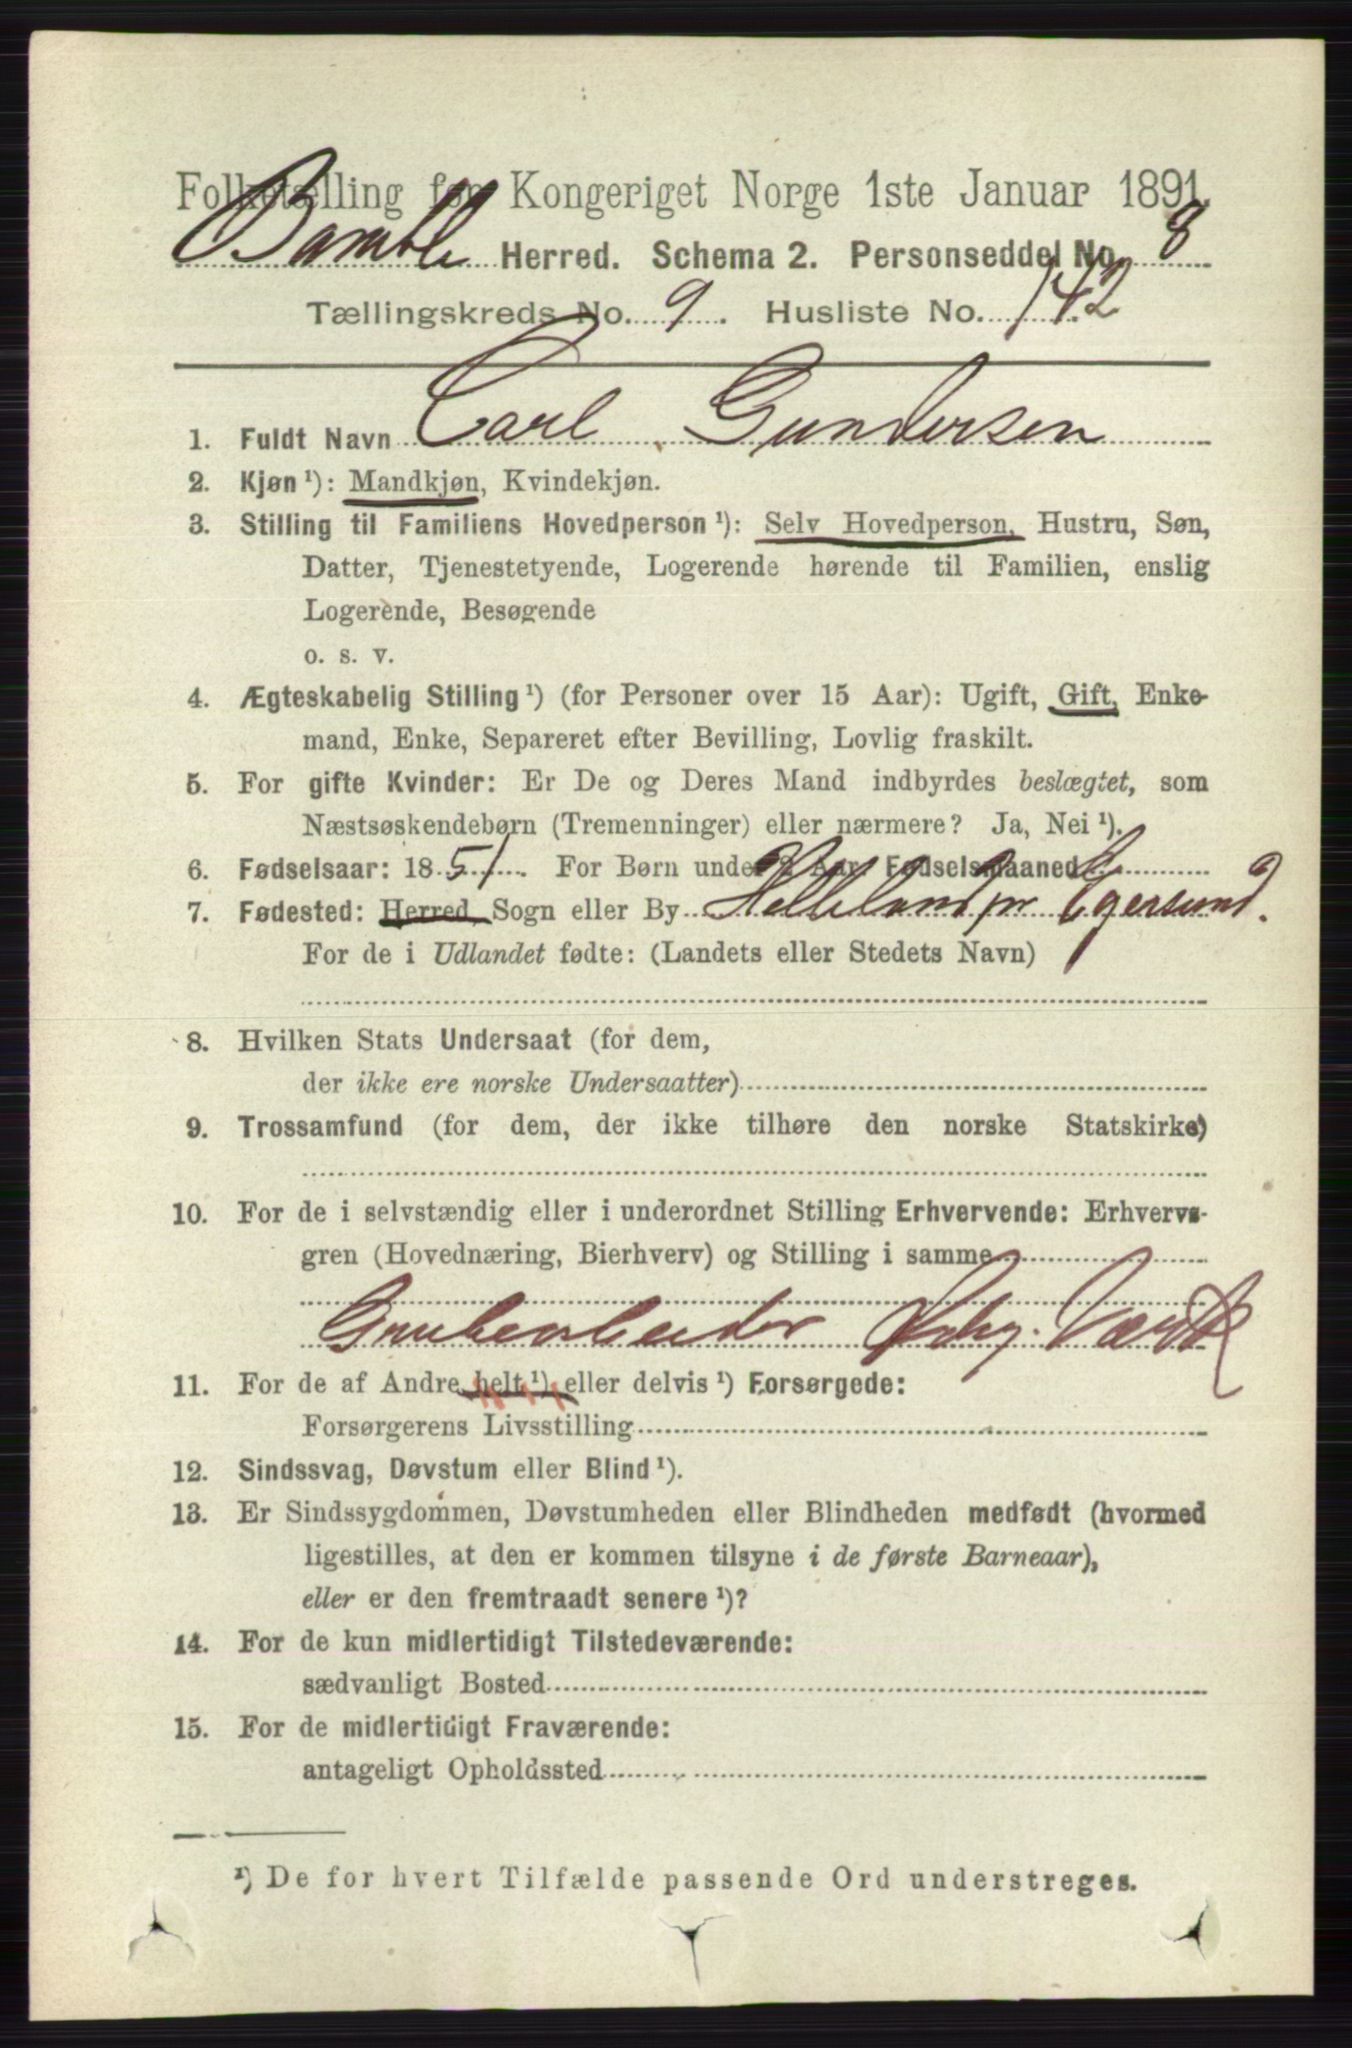 Folketælling for Kongeriget Norge 1ste Januar 1891.
Bamble Herred. Schema 2. Personseddel No. 8
Tællingskreds No. 9. Husliste No. 142
1. Fuldt Navn Carl Gundersen
2. Kjøn ¹): Mandkjøn, Kvindekjøn.
3. Stilling til Familiens Hovedperson ¹): Selv Hovedperson, Hustru, Søn,
Datter, Tjenestetyende, Logerende hørende til Familien, enslig
Logerende, Besøgende
o. s. v.
4. Ægteskabelig Stilling ¹) (for Personer over 15 Aar): Ugift, Gift, Enke-
mand, Enke, Separeret efter Bevilling, Lovlig fraskilt.
5. For gifte Kvinder: Er De og Deres Mand indbyrdes beslægtet, som
Næstsøskendebørn (Tremenninger) eller nærmere? Ja, Nei ¹).
6. Fødselsaar: 1851. For Børn under 2 Aar: Fødselsmaaned
7. Fødested: Herred, Sogn eller By Helleland pr Egersund.
For de i Udlandet fødte: (Landets eller Stedets Navn)
8. Hvilken Stats Undersaat (for dem,
der ikke ere norske Undersaatter)
9. Trossamfund (for dem, der ikke tilhøre den norske Statskirke)
10. For de i selvstændig eller i underordnet Stilling Erhvervende: Erhvervs-
gren (Hovednæring, Bierhverv) og Stilling i samme
Grubearbeider Værk
11. For de af Andre helt ¹) eller delvis ¹) Forsørgede:
Forsørgerens Livsstilling
12. Sindssvag, Døvstum eller Blind ¹).
13. Er Sindssygdommen, Døvstumheden eller Blindheden medfødt (hvormed
ligestilles, at den er kommen tilsyne i de første Barneaar),
eller er den fremtraadt senere ¹)?
14. For de kun midlertidigt Tilstedeværende:
sædvanligt Bosted
15. For de midlertidigt Fraværende:
antageligt Opholdssted
¹) De for hvert Tilfælde passende Ord understreges.